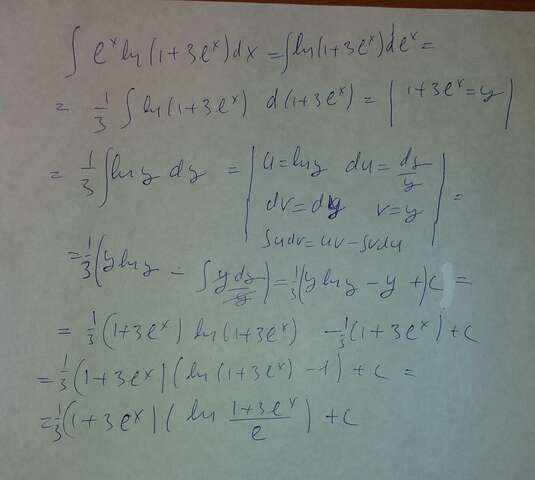 ∫ e^x ln(1+3e^x)dx = ∫ln(1+3e^x)de^x =
= 1/3 ∫ ln(1+3e^x) d(1+3e^x) = | 1+3e^x = y |
= 1/3 ∫ ln y dy = | u = ln y du = dy/y
dv = dy v = y
∫udv = uv - ∫vdu | =
= 1/3 (y ln y - ∫ y dy/y) = 1/3 (y ln y - y +) C =
= 1/3 (1+3e^x) ln(1+3e^x) - 1/3 (1+3e^x) + C
= 1/3 (1+3e^x) (ln(1+3e^x) - 1) + C =
= 1/3 (1+3e^x) (ln (1+3e^x)/e) + C